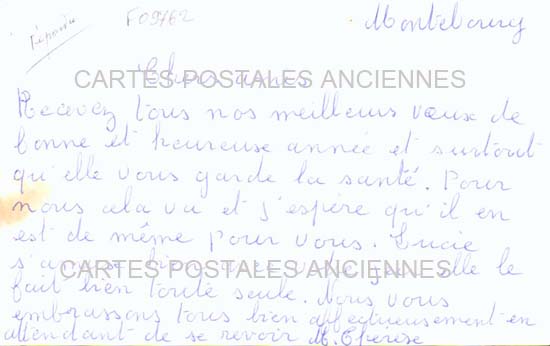 Répondu
F09762
Montebourg
Chers amis
CARTES POSTALES ANCIENNES
Recevez tous nos meilleurs vœux de
bonne et heureuse année et surtout
qu'elle vous garde la santé. Pour
nous cela va et j'espère qu'il en
est de même pour vous. Lucie
s'amuse bien avec elle le
CARTES POSTALES ANCIENNES
fait bien toute seule. Nous vous
embrassons tous bien affectueusement en
attendant de se revoir M. Thérèse